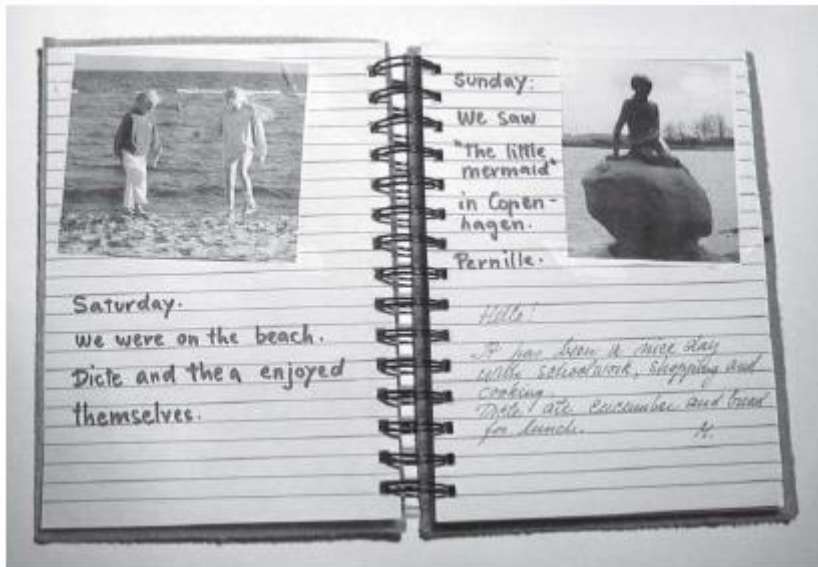 Saturday.
We were on the beach.
Dicte and thea enjoyed
themselves.
Sunday:
We saw
"The little
mermaid"
in Copen-
hagen.
Pernille.
Hello!
It has been a nice day
with schoolwork, shopping and
cooking.
Dicte ate cucumber and bread
for lunch. M.